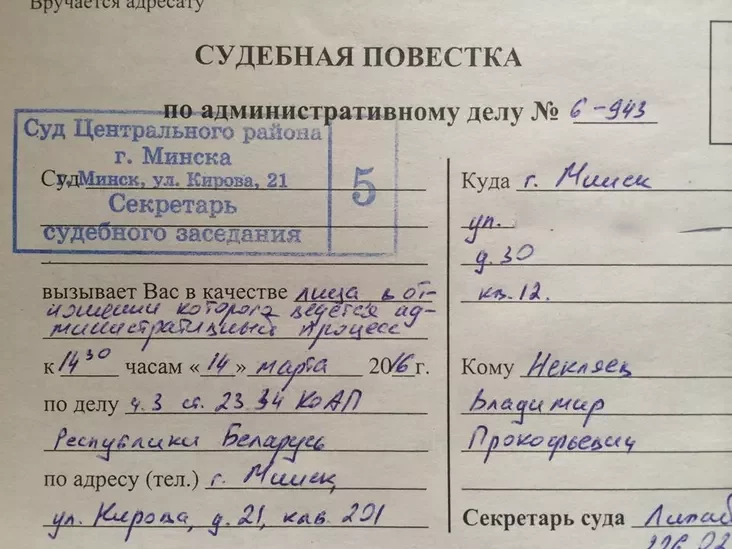 Вручается адресату
СУДЕБНАЯ ПОВЕСТКА
по административному делу № 6-943
Суд Центрального района
г. Минска
г. Минск, ул. Кирова, 21
Секретарь
судебного заседания
5
Суд
вызывает Вас в качестве лица в от-
ношении которого ведется ад-
министративный процесс
к 14 30 часам «14» марта 2016 г.
по делу ч. 3 ст. 23 34 КоАП
Республики Беларусь
по адресу (тел.) г. Минск,
ул. Кирова, д. 21, каб. 201
Куда г. Минск
ул.
д. 30
кв. 12.
Кому Некляев
Владимир
Прокофьевич
Секретарь суда